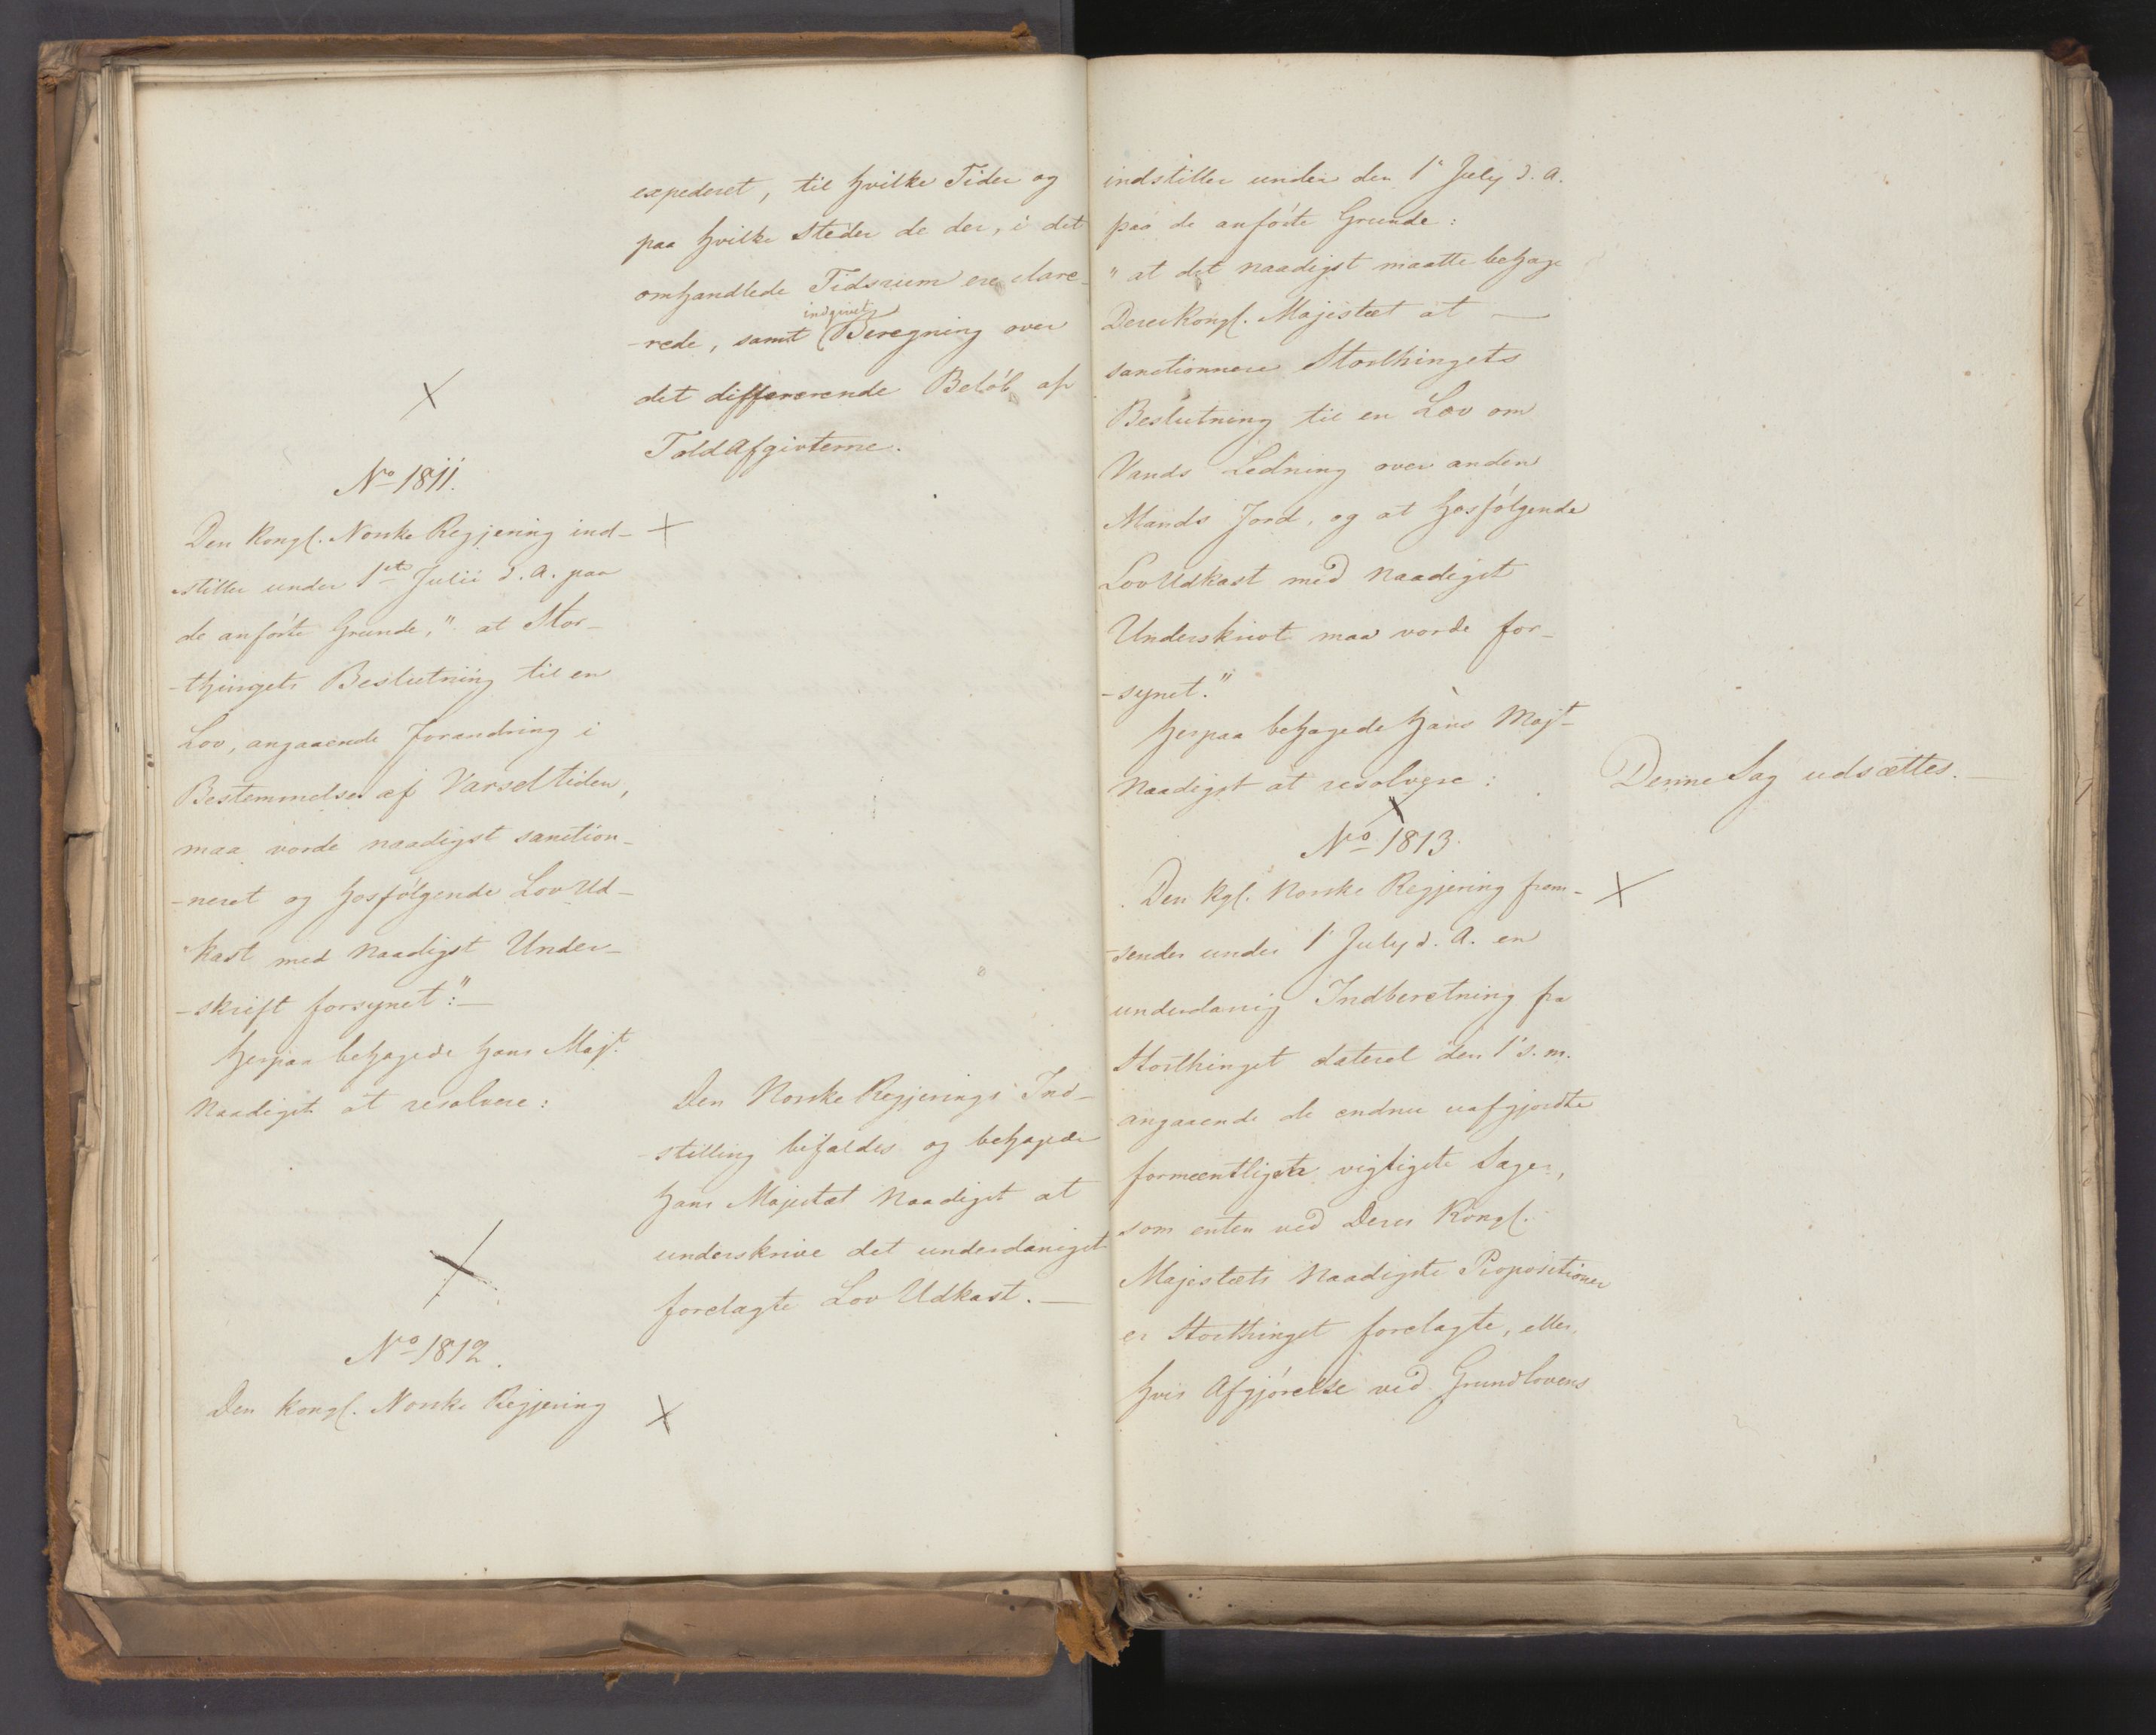 expederet, til hvilke Tider og
paa hvilke Steder de der, i det
omhandlede Tidsrum ere clare-
indgivet
-rede, samt Beregning over
det differerende Beløb af
ToldAfgivterne.
No 1811.
Den Kongl. Norske Regjering ind-
stiller under 1ste Julii d. A. paa
de anførte Grunde, "at Stor-
-thingets Beslutning til en
Lov, angaaende Forandring i
Bestemmelsen af Varseltiden,
maa vorde naadigst sanction-
-neret og hosfølgende LovUd-
kast med Naadigst Under-
-skrift forsynet":-
Herpaa behagede Hans Majt.
Naadigst at resolvere:
Den Norske Regjerings Ind-
stilling bifaldes og behagede
Hans Majestæt Naadigst at
underskrive det underdanigst
forelagte Lov Udkast. -
No 1812.
Den Kongl. Norske Regjering
indstiller under den 1' July d. A.
paa de anførte Grunde:
"at det naadigst maatte behage
Deres Kongl. Majestæt at -
sanctionnere Storthingets
Beslutning til en Lov om
Vands Ledning over anden
Mands Jord, og at hosfølgende
LovUdkast med Naadigst
Underskrivt maa vorde for-
-synet."
Herpaa behagede Hans Majt
Naadigst at resolvere:
Denne Sag udsættes. -
No 1813.
Den Kgl. Norske Regjering frem-
-sender under 1' July d. A. en
underdanig Indberetning fra
Storthinget dateret den 1' s. m.
angaaende de endnu uafgjordte
formeentligste vigtigste Sager,
som enten ved Deres Kongl.
Majestæts Naadigste Propositioner
er Storthinget forelagte, eller,
hvis Afgjørelse ved Grundlovens